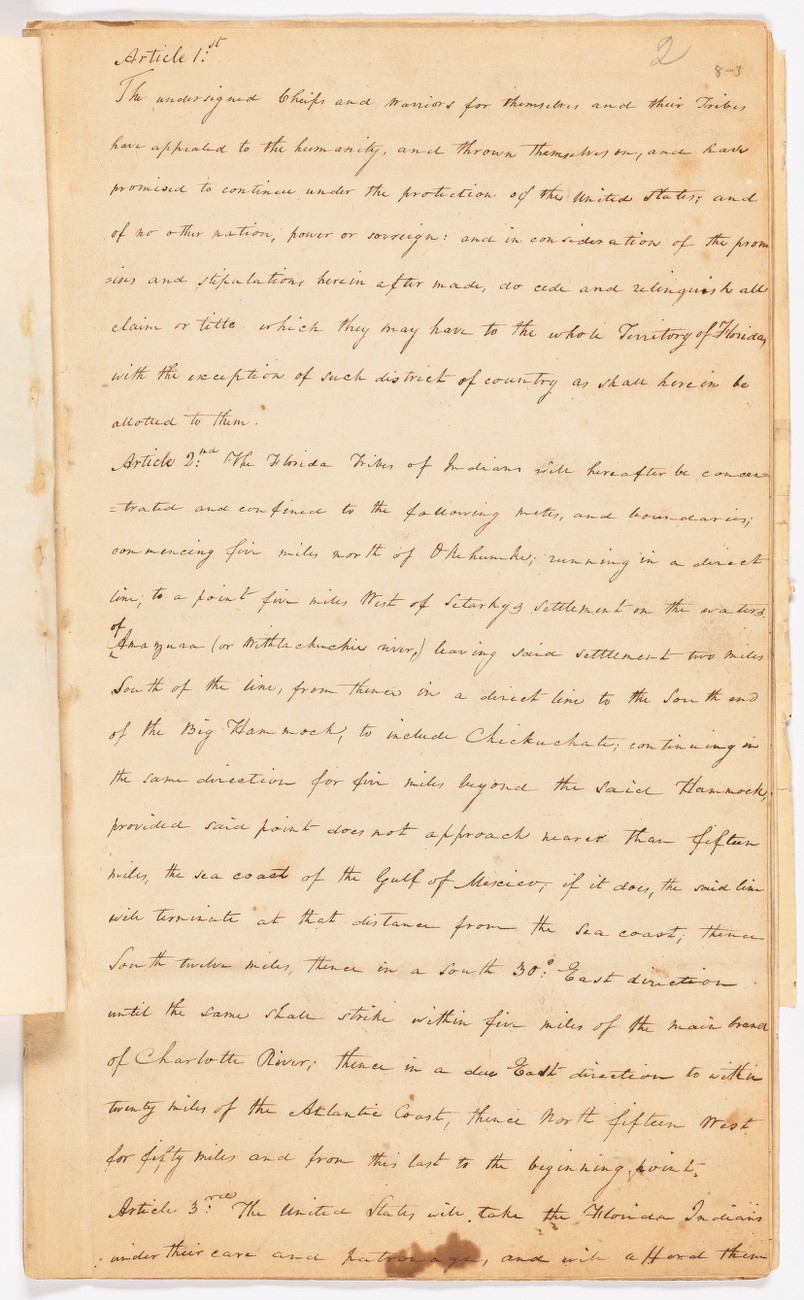 2
8-3
Article 1:st
The undersigned Chiefs and warriors for themselves and their Tribes
have appealed to the humanity, and thrown themselves on, and have
promised to continue under the protection of the United States; and
of no other nation, power or sovreign: and in consideration of the prom
ises and stipulations herein after made, do cede and relinquish all
claim or title which they may have to the whole Territory of Florida,
with the exception of such district of country as shall herein be
allotted to them.
Article 2:nd The Florida Tribes of Indians will hereafter be concen=
=trated and confined to the following metes, and boundaries;
commencing five miles north of Okehumke; running in a direct
line, to a point five miles West of Setarky's settlement on the waters
of
Amazura (or Withlachuchie river,) leaving said settlement two miles
South of the line; from thence in a direct line to the South end
of the Big Hammock, to include Chickuchate; continuing in
the same direction for five miles beyond the said Hammock,
provided said point does not approach nearer than fifteen
miles, the sea coast of the Gulf of Mexico; if it does, the said line
will terminate at that distance from the sea coast; thence
South twelve miles, thence in a South 30:° East direction
until the same shall strike within five miles of the main branch
of Charlotte River; thence in a due East direction to within
twenty miles of the Atlantic Coast, thence North fifteen West
for fifty miles and from this last to the beginning point.
Article 3:rd The United States will take the Florida Indians
under their care and patronage, and will afford them